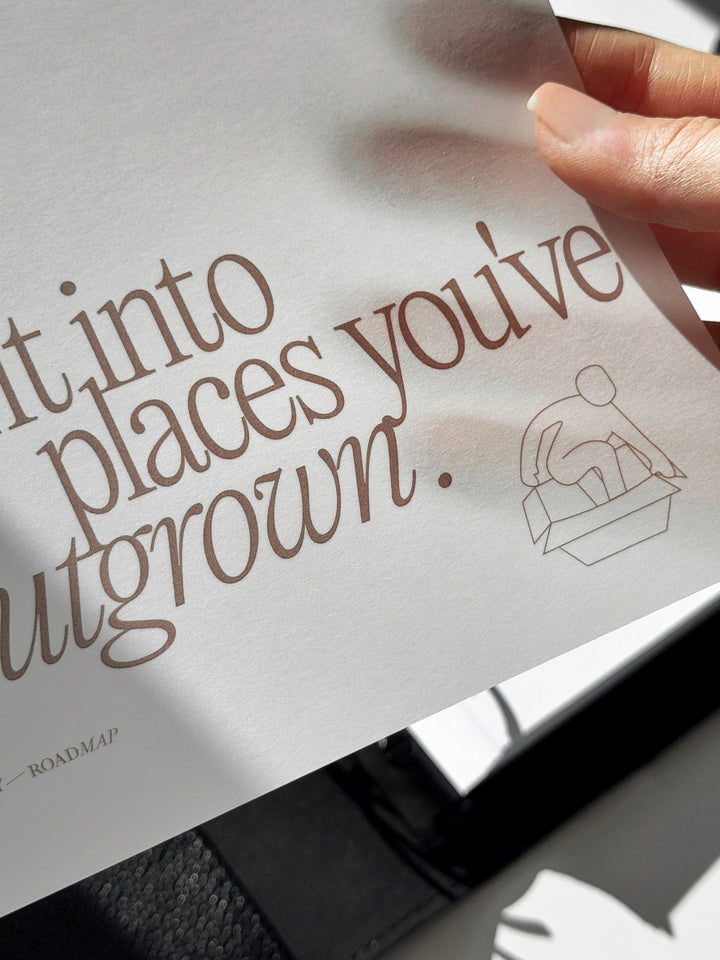 into
places you've
outgrown.
—ROADMAP